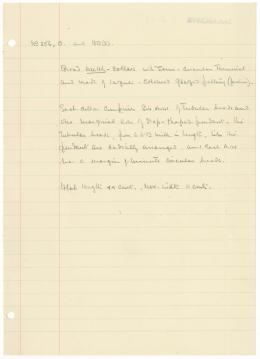 256, D. and
Broad necklet - Collars with Semi-circular Terminal
and made of Turquoise-coloured glazed pottery (faience).
Each collar comprises six rows of Tubular beads and
one marginal row of Drop-shaped pendant. The
tubular beads, from to in length, like the
pendant are radially arranged, and each row
has a margin of minute circular beads.
Total length 44 cent. Max. width 11 cent.